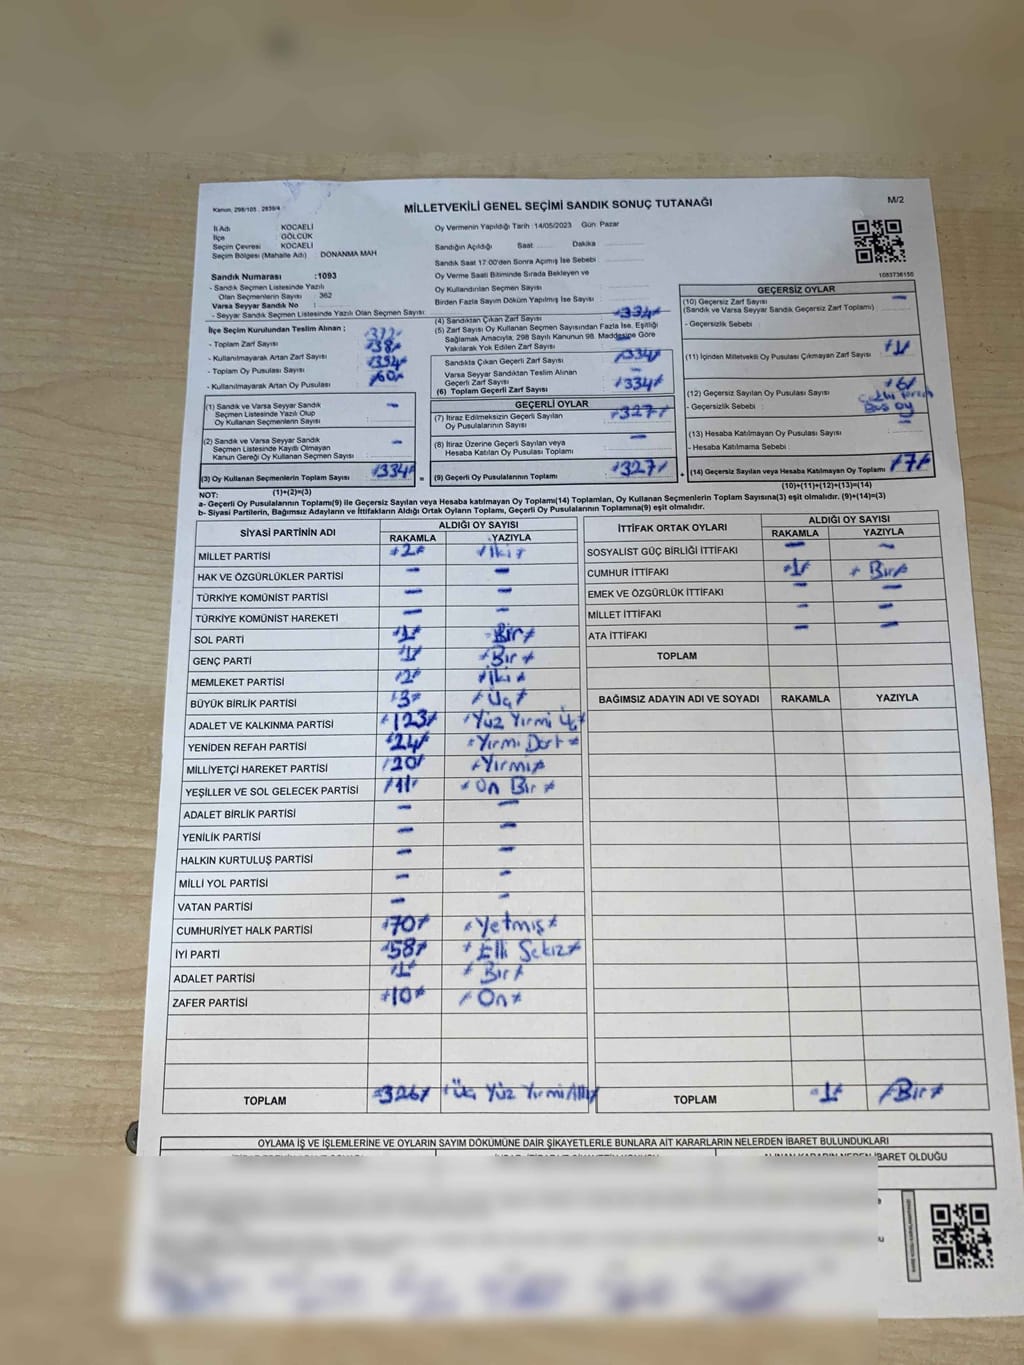 Kanun, 298/105 , 2839/4
MİLLETVEKİLİ GENEL SEÇİMİ SANDIK SONUÇ TUTANAĞI
M/2
İl Adı KOCAELİ
İlçe GÖLCÜK
Seçim Çevresi KOCAELİ
Seçim Bölgesi (Mahalle Adı) DONANMA MAH
Sandık Numarası :1093
- Sandık Seçmen Listesinde Yazılı
Olan Seçmenlerin Sayısı 362
Varsa Seyyar Sandık No :
- Seyyar Sandık Seçmen Listesinde Yazılı Olan Seçmen Sayısı
İlçe Seçim Kurulundan Teslim Alınan ;
- Toplam Zarf Sayısı
- Kullanılmayarak Artan Zarf Sayısı 38
- Toplam Oy Pusulası Sayısı 394
- Kullanılmayarak Artan Oy Pusulası 60
(1) Sandık ve Varsa Seyyar Sandık
Seçmen Listesinde Yazılı Olup
Oy Kullanan Seçmenlerin Sayısı -
(2) Sandık ve Varsa Seyyar Sandık
Seçmen Listesinde Kayıtlı Olmayan
Kanun Gereği Oy Kullanan Seçmen Sayısı -
(3) Oy Kullanan Seçmenlerin Toplam Sayısı 334 =
(1)+(2)=(3)
Oy Vermenin Yapıldığı Tarih :14/05/2023 Gün: Pazar
Sandığın Açıldığı Saat Dakika
Sandık Saat 17:00'den Sonra Açımış İse Sebebi
Oy Verme Saati Bitiminde Sırada Bekleyen ve
Oy Kullandırılan Seçmen Sayısı
Birden Fazla Sayım Döküm Yapılmış İse Sayısı
(4) Sandıktan Çıkan Zarf Sayısı 334
(5) Zarf Sayısı Oy Kullanan Seçmen Sayısından Fazla İse, Eşitliği
Sağlamak Amacıyla, 298 Sayılı Kanunun 98. Maddesine Göre
Yakılarak Yok Edilen Zarf Sayısı -
Sandıkta Çıkan Geçerli Zarf Sayısı 334
Varsa Seyyar Sandıktan Teslim Alınan
Geçerli Zarf Sayısı -
(6) Toplam Geçerli Zarf Sayısı 334
GEÇERLİ OYLAR
(7) İtiraz Edilmeksizin Geçerli Sayılan
Oy Pusulalarının Sayısı 327
(8) İtiraz Üzerine Geçerli Sayılan veya
Hesaba Katılan Oy Pusulası Toplamı -
(9) Geçerli Oy Pusulalarının Toplamı 327 +
1083736150
GEÇERSİZ OYLAR
(10) Geçersiz Zarf Sayısı -
(Sandık ve Varsa Seyyar Sandık Geçersiz Zarf Toplamı)
- Geçersizlik Sebebi :
(11) İçinden Milletvekili Oy Pusulası Çıkmayan Zarf Sayısı 1
(12) Geçersiz Sayılan Oy Pusulası Sayısı 6
- Geçersizlik Sebebi : Boş oy
(13) Hesaba Katılmayan Oy Pusulası Sayısı -
- Hesaba Katılmama Sebebi :
(14) Geçersiz Sayılan veya Hesaba Katılmayan Oy Toplamı 7
(10)+(11)+(12)+(13)=(14)
NOT:
a- Geçerli Oy Pusulalarının Toplamı(9) ile Geçersiz Sayılan veya Hesaba katılmayan Oy Toplamı(14) Toplamları, Oy Kullanan Seçmenlerin Toplam Sayısına(3) eşit olmalıdır. (9)+(14)=(3)
b- Siyasi Partilerin, Bağımsız Adayların ve İttifakların Aldığı Ortak Oyların Toplamı, Geçerli Oy Pusulalarının Toplamına(9) eşit olmalıdır.
SİYASİ PARTİNİN ADI ALDIĞI OY SAYISI
RAKAMLA YAZIYLA
MİLLET PARTİSİ 2 İki
HAK VE ÖZGÜRLÜKLER PARTİSİ - -
TÜRKİYE KOMÜNİST PARTİSİ - -
TÜRKİYE KOMÜNİST HAREKETİ - -
SOL PARTİ 1 Bir
GENÇ PARTİ 1 Bir
MEMLEKET PARTİSİ 2 İki
BÜYÜK BİRLİK PARTİSİ 3 Üç
ADALET VE KALKINMA PARTİSİ 123 Yüz Yirmi Üç
YENİDEN REFAH PARTİSİ 24 Yirmi Dört
MİLLİYETÇİ HAREKET PARTİSİ 20 Yirmi
YEŞİLLER VE SOL GELECEK PARTİSİ 11 On Bir
ADALET BİRLİK PARTİSİ - -
YENİLİK PARTİSİ - -
HALKIN KURTULUŞ PARTİSİ - -
MİLLİ YOL PARTİSİ - -
VATAN PARTİSİ - -
CUMHURİYET HALK PARTİSİ 70 Yetmiş
İYİ PARTİ 58 Elli Sekiz
ADALET PARTİSİ 1 Bir
ZAFER PARTİSİ 10 On
TOPLAM 326 Üç Yüz Yirmi Altı
İTTİFAK ORTAK OYLARI ALDIĞI OY SAYISI
RAKAMLA YAZIYLA
SOSYALİST GÜÇ BİRLİĞİ İTTİFAKI - -
CUMHUR İTTİFAKI 1 Bir
EMEK VE ÖZGÜRLÜK İTTİFAKI - -
MİLLET İTTİFAKI - -
ATA İTTİFAKI - -
TOPLAM
BAĞIMSIZ ADAYIN ADI VE SOYADI RAKAMLA YAZIYLA
TOPLAM 1 Bir
OYLAMA İŞ VE İŞLEMLERİNE VE OYLARIN SAYIM DÖKÜMÜNE DAİR ŞİKAYETLERLE BUNLARA AİT KARARLARIN NELERDEN İBARET BULUNDUKLARI
İBARET OLDUĞU